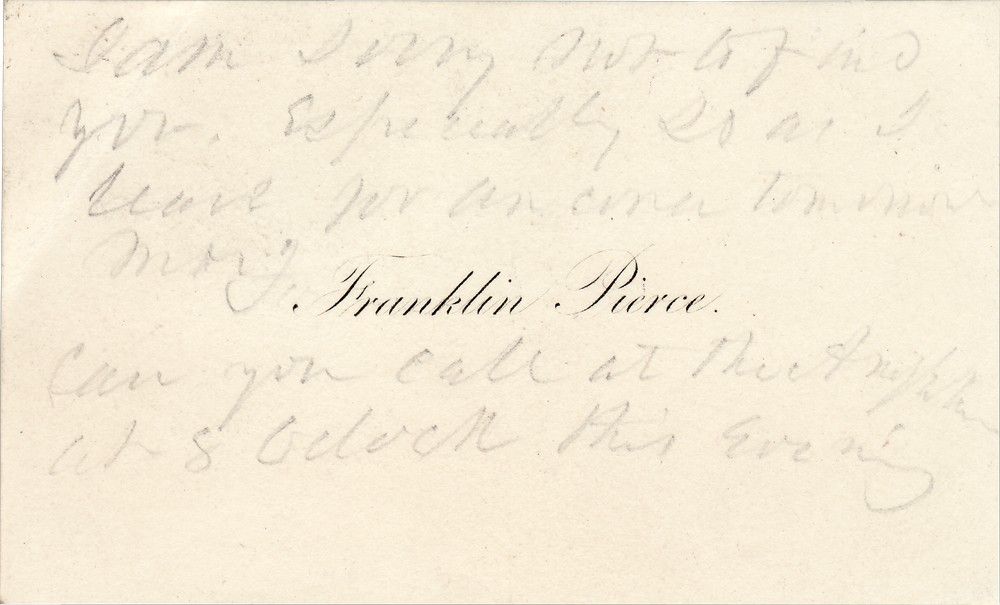 I am Sorry not to find
you. Especially so as I
leave for an tomorrow
Morg
Franklin Pierce.
Can you call at the
at 8 Oclock this Evening